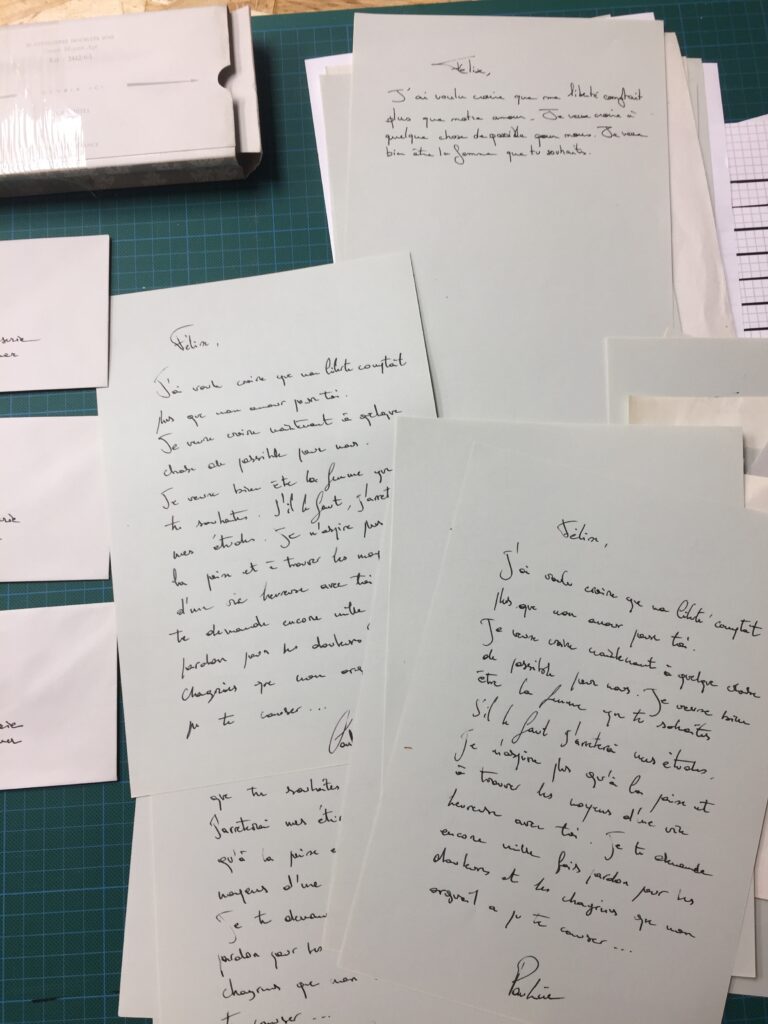 Félix,
J'ai voulu croire que ma liberté comptait
plus que notre amour. Je veux croire à
quelque chose de possible pour nous. Je veux
bien être la femme que tu souhaites.
Félix,
J'ai voulu croire que ma liberté comptât
plus que mon amour pour toi.
Je veux croire maintenant à quelque
chose de possible pour nous.
Je veux bien être la femme que
tu souhaites. S'il le faut, j'arrêt
mes études. Je n'aspire plus
la paix et à trouver les moy
d'une vie heureuse avec toi
te demande encore mille
pardon pour les douleurs
chagrins que mon org
pu te causer...
Félix,
J'ai voulu croire que ma liberté comptât
plus que mon amour pour toi.
Je veux croire maintenant à quelque chose
de possible pour nous. Je veux bien
être la femme que tu souhaites
S'il le faut j'arrêterai mes études.
Je n'aspire plus qu'à la paix et
à trouver les moyens d'une vie
heureuse avec toi. Je te demande
encore mille fois pardon pour les
douleurs et les chagrins que mon
orgueil a pu te causer...
Pauline
que tu souhaites
J'arrêterai mes étu
qu'à la paix e
moyens d'une
Je te deman
pardon pour les
chagrins que mon
t causer...